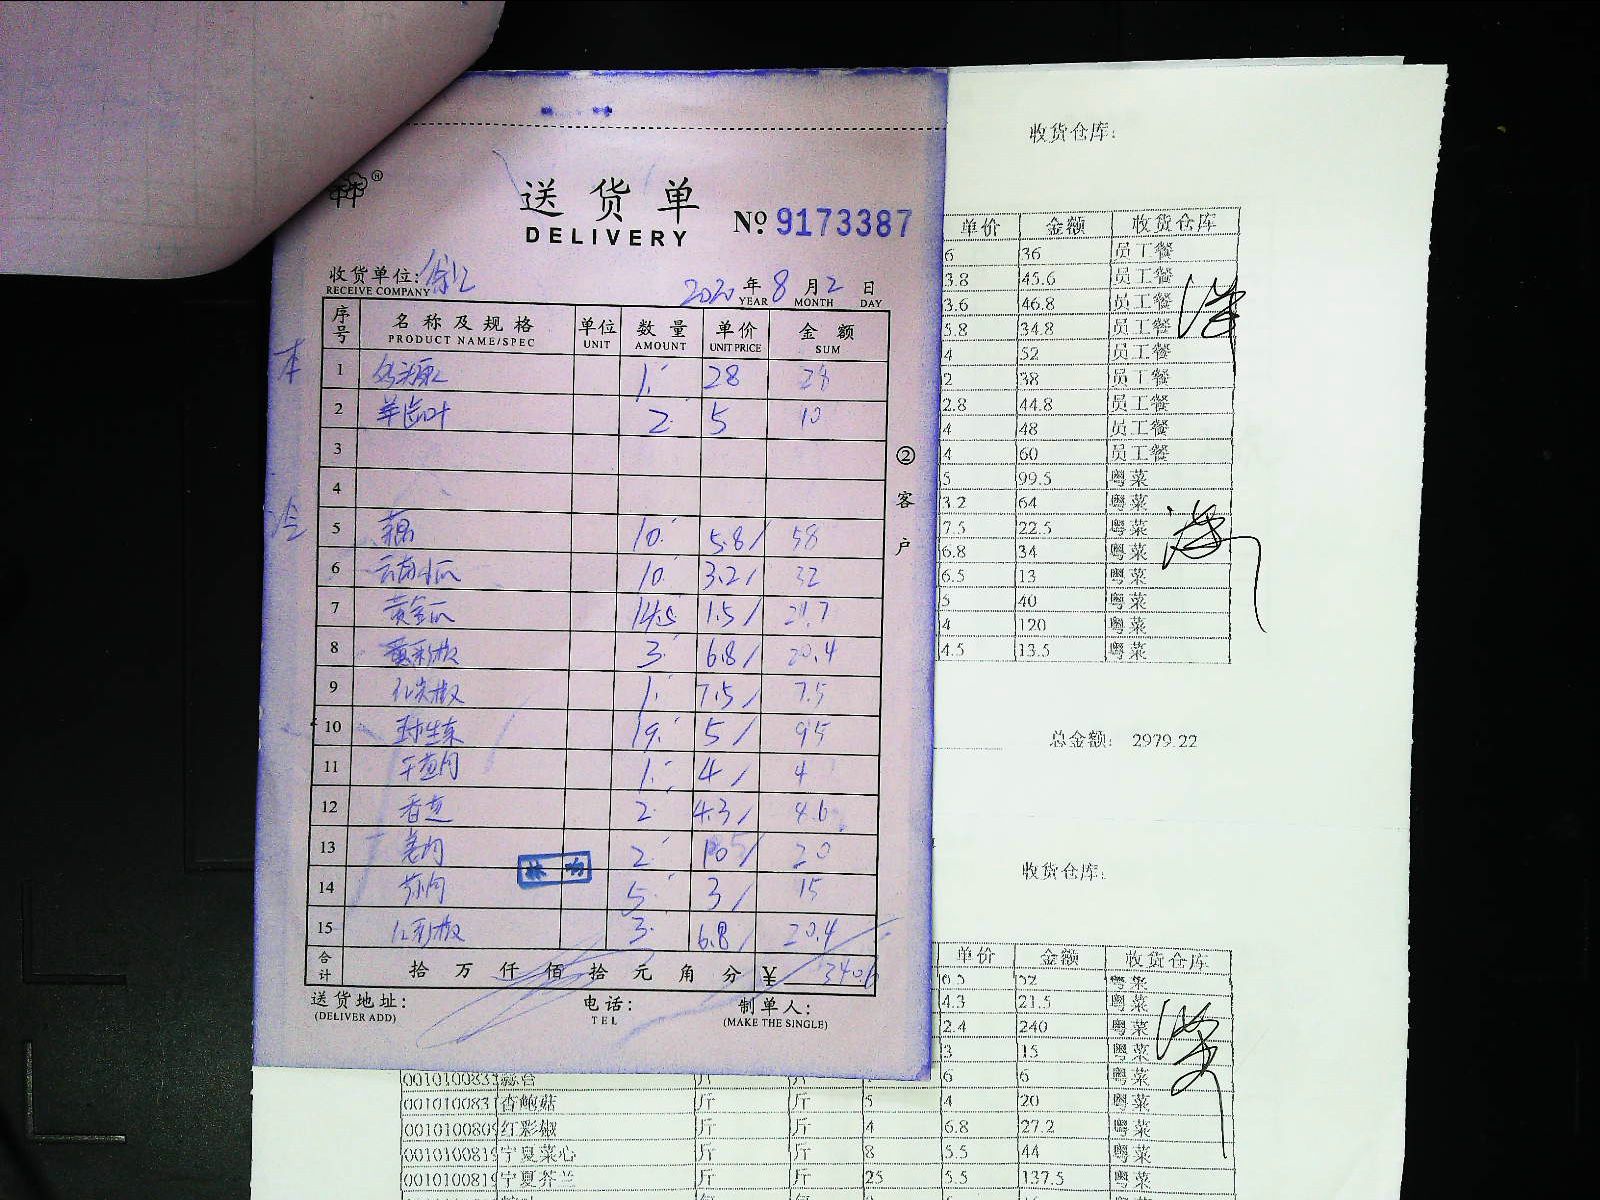 收货仓库:
送货单
DELIVERY
№ 9173387
收货单位:
RECEIVE COMPANY
2020 年 8 月 2 日
YEAR MONTH DAY
序号 名称及规格 单位 数量 单价 金额
PRODUCT NAME/SPEC UNIT AMOUNT UNIT PRICE SUM
本
1 1 28 28
2 羊齿叶 2 5 10
3
4
冷
5 藕 10 5.8 58
6 云南小瓜 10 3.2 32
7 黄金瓜 14.5 1.5 21.7
8 黄彩椒 3 6.8 20.4
9 红尖椒 1 7.5 7.5
10 球生菜 19 5 95
11 干葱肉 1 4 4
12 香芝 2 4.3 8.6
13 姜肉 2 10 20
14 5 3 15
15 红彩椒 3 6.8 20.4
合计 拾 万 仟 佰 拾 元 角 分 ¥ 340.6
送货地址: 电话: 制单人:
(DELIVER ADD) TEL (MAKE THE SINGLE)
② 客户
单价 金额 收货仓库
6 36 员工餐
3.8 45.6 员工餐
3.6 46.8 员工餐
5.8 34.8 员工餐
4 52 员工餐
2 38 员工餐
2.8 44.8 员工餐
4 48 员工餐
4 60 员工餐
5 99.5 粤菜
3.2 64 粤菜
7.5 22.5 粤菜
6.8 34 粤菜
6.5 13 粤菜
5 40 粤菜
4 120 粤菜
4.5 13.5 粤菜
总金额: 2979.22
收货仓库:
单价 金额 收货仓库
6.5 52 粤菜
4.3 21.5 粤菜
2.4 240 粤菜
3 15 粤菜
6 6 粤菜
001010083 杏鲍菇 斤 斤 5 4 20 粤菜
001010080 红彩椒 斤 斤 4 6.8 27.2 粤菜
001010081 宁夏菜心 斤 斤 8 5.5 44 粤菜
001010081 宁夏芥兰 斤 斤 25 5.5 137.5 粤菜